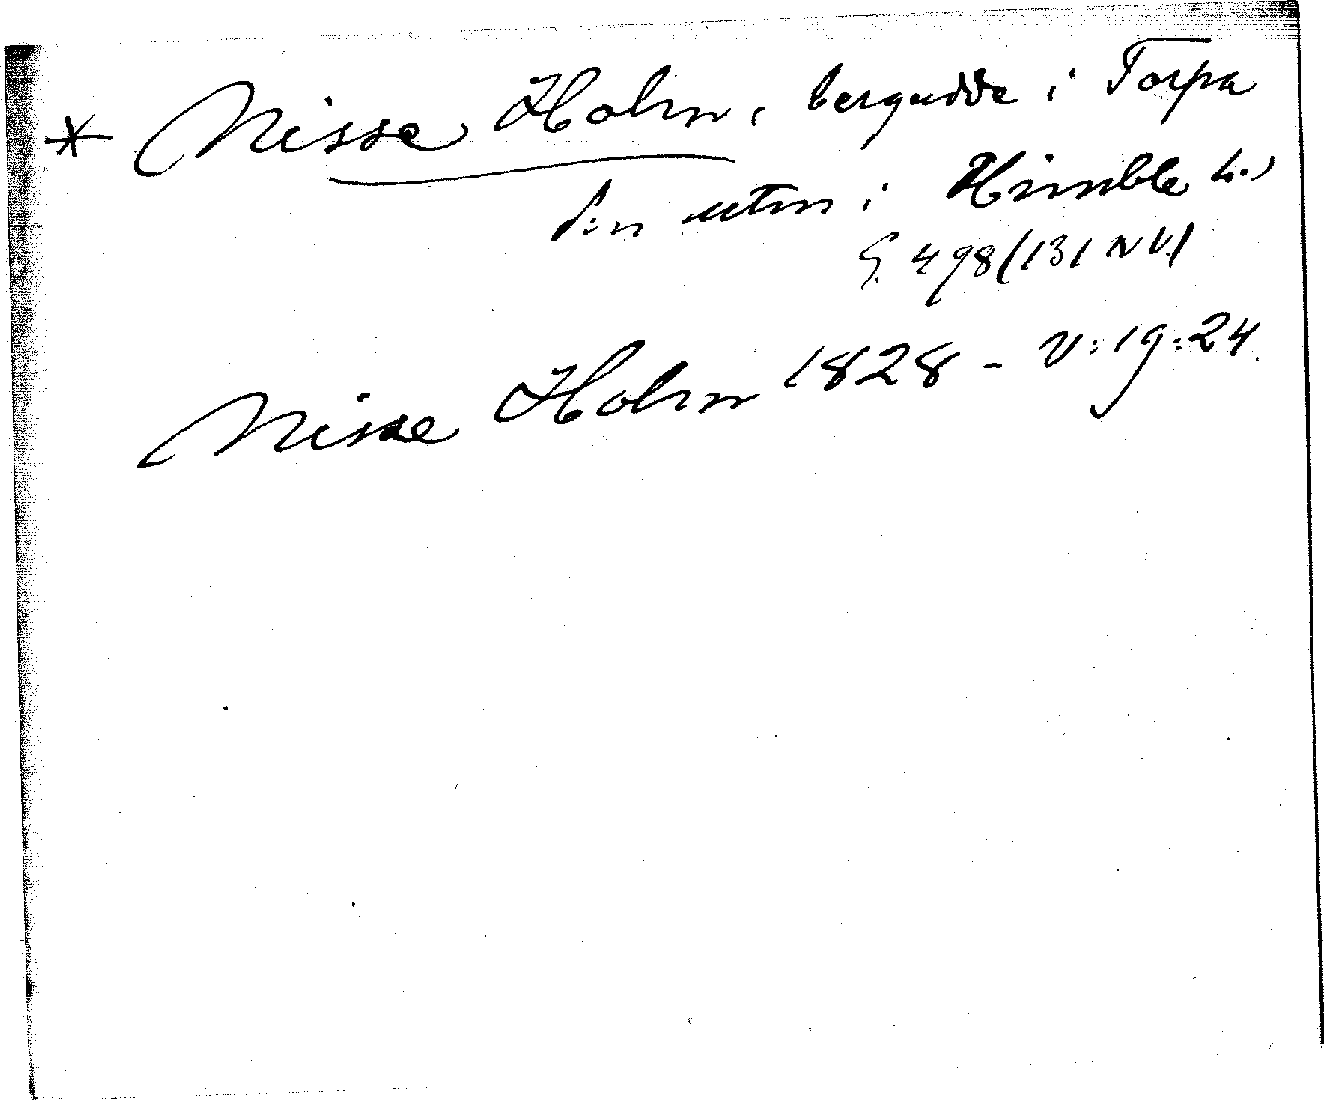 * Nisse Holm, bergudde i Torpa
skn utm i Himble h.,
G. 498 (131 NV.)
Nisse Holm 1828 - V:19:24.